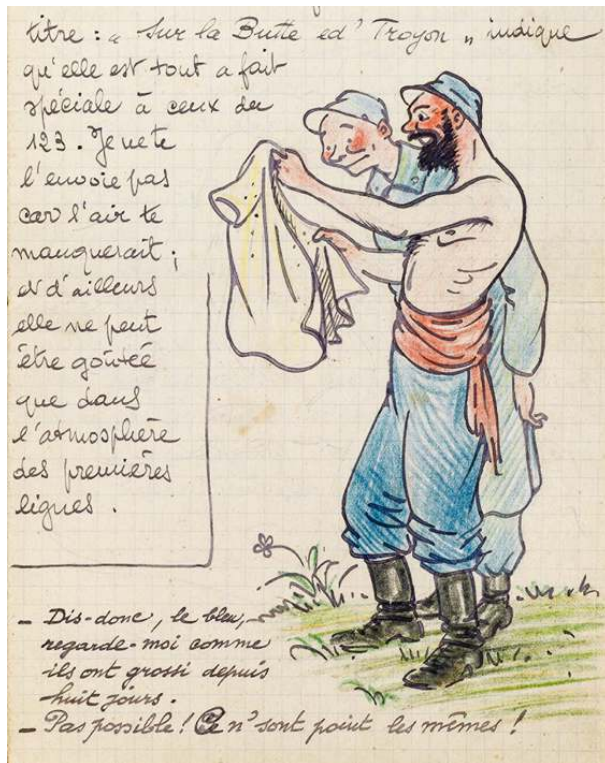 titre : „ Sur la Butte ed' Troyon „ indique
qu'elle est tout a fait
spéciale à ceux du
123. Je ne te
l'envoie pas
car l'air te
manquerait ;
et d'ailleurs
elle ne peut
être goûtée
que dans
l'atmosphère
des premières
lignes .
– Dis-donc, le bleu,
regarde-moi comme
ils ont grossi depuis
huit jours.
– Pas possible ! Ce n' sont point les mêmes !